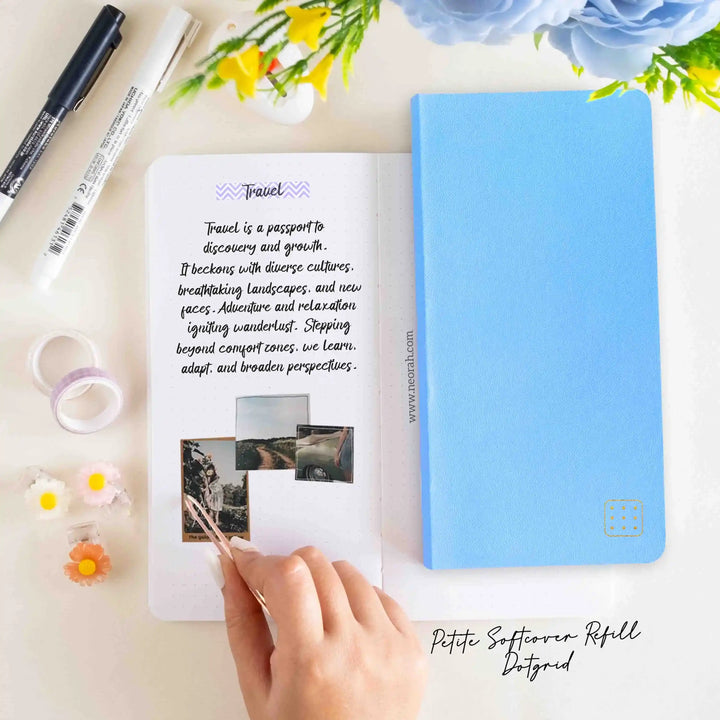 Travel
Travel is a passport to
discovery and growth.
It beckons with diverse cultures,
breathtaking landscapes, and new
faces. Adventure and relaxation
igniting wanderlust. Stepping
beyond comfort zones, we learn,
adapt, and broaden perspectives.
www.neorah.com
Petite Softcover Refill
Dotgrid